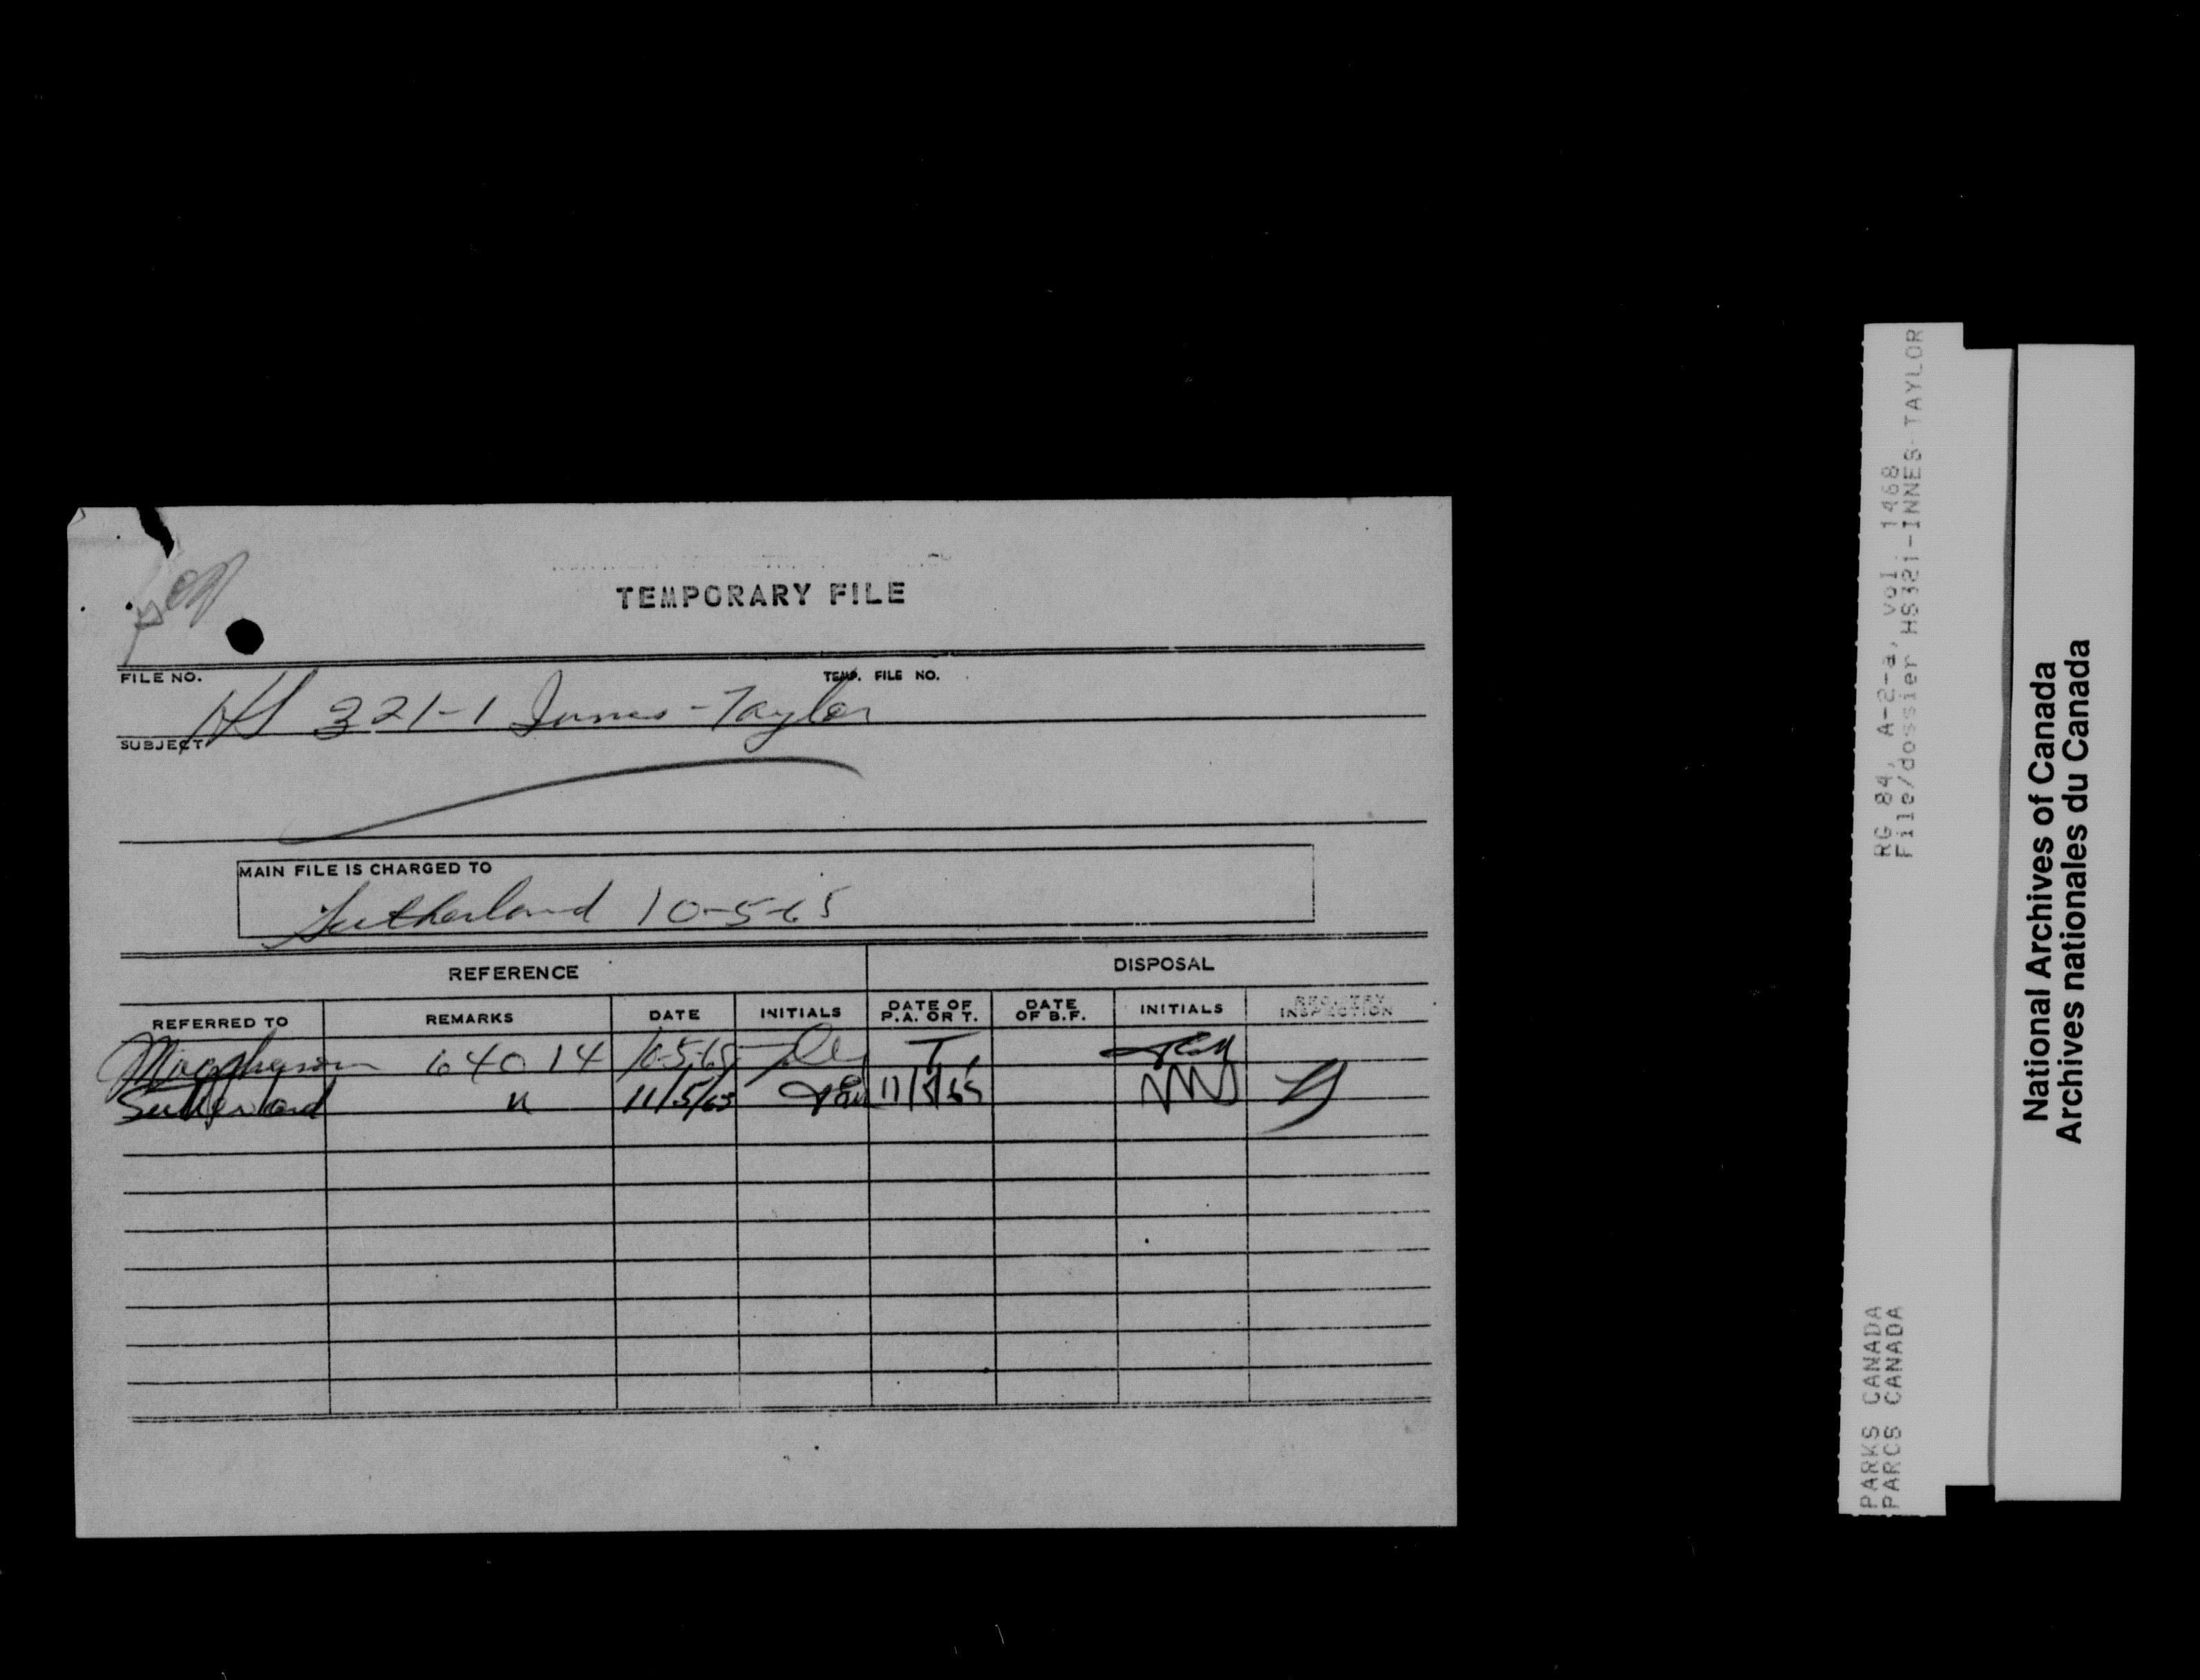 TEMPORARY FILE
FILE NO.
TEMP. FILE NO.
HS 321-1 Innes-Taylor
SUBJECT
MAIN FILE IS CHARGED TO
Sutherland 10-5-65
REFERENCE
DISPOSAL
REFERRED TO REMARKS DATE INITIALS DATE OF P.A. OR T. DATE OF B.F. INITIALS REGISTRY INSPECTION
Macpherson 64014 10-5-65 T
Sutherland " 11/5/65 11/5/65
RG 84, A-2-a, vol 1468
File/dossier HS321-INNES-TAYLOR
PARKS CANADA
PARCS CANADA
National Archives of Canada
Archives nationales du Canada